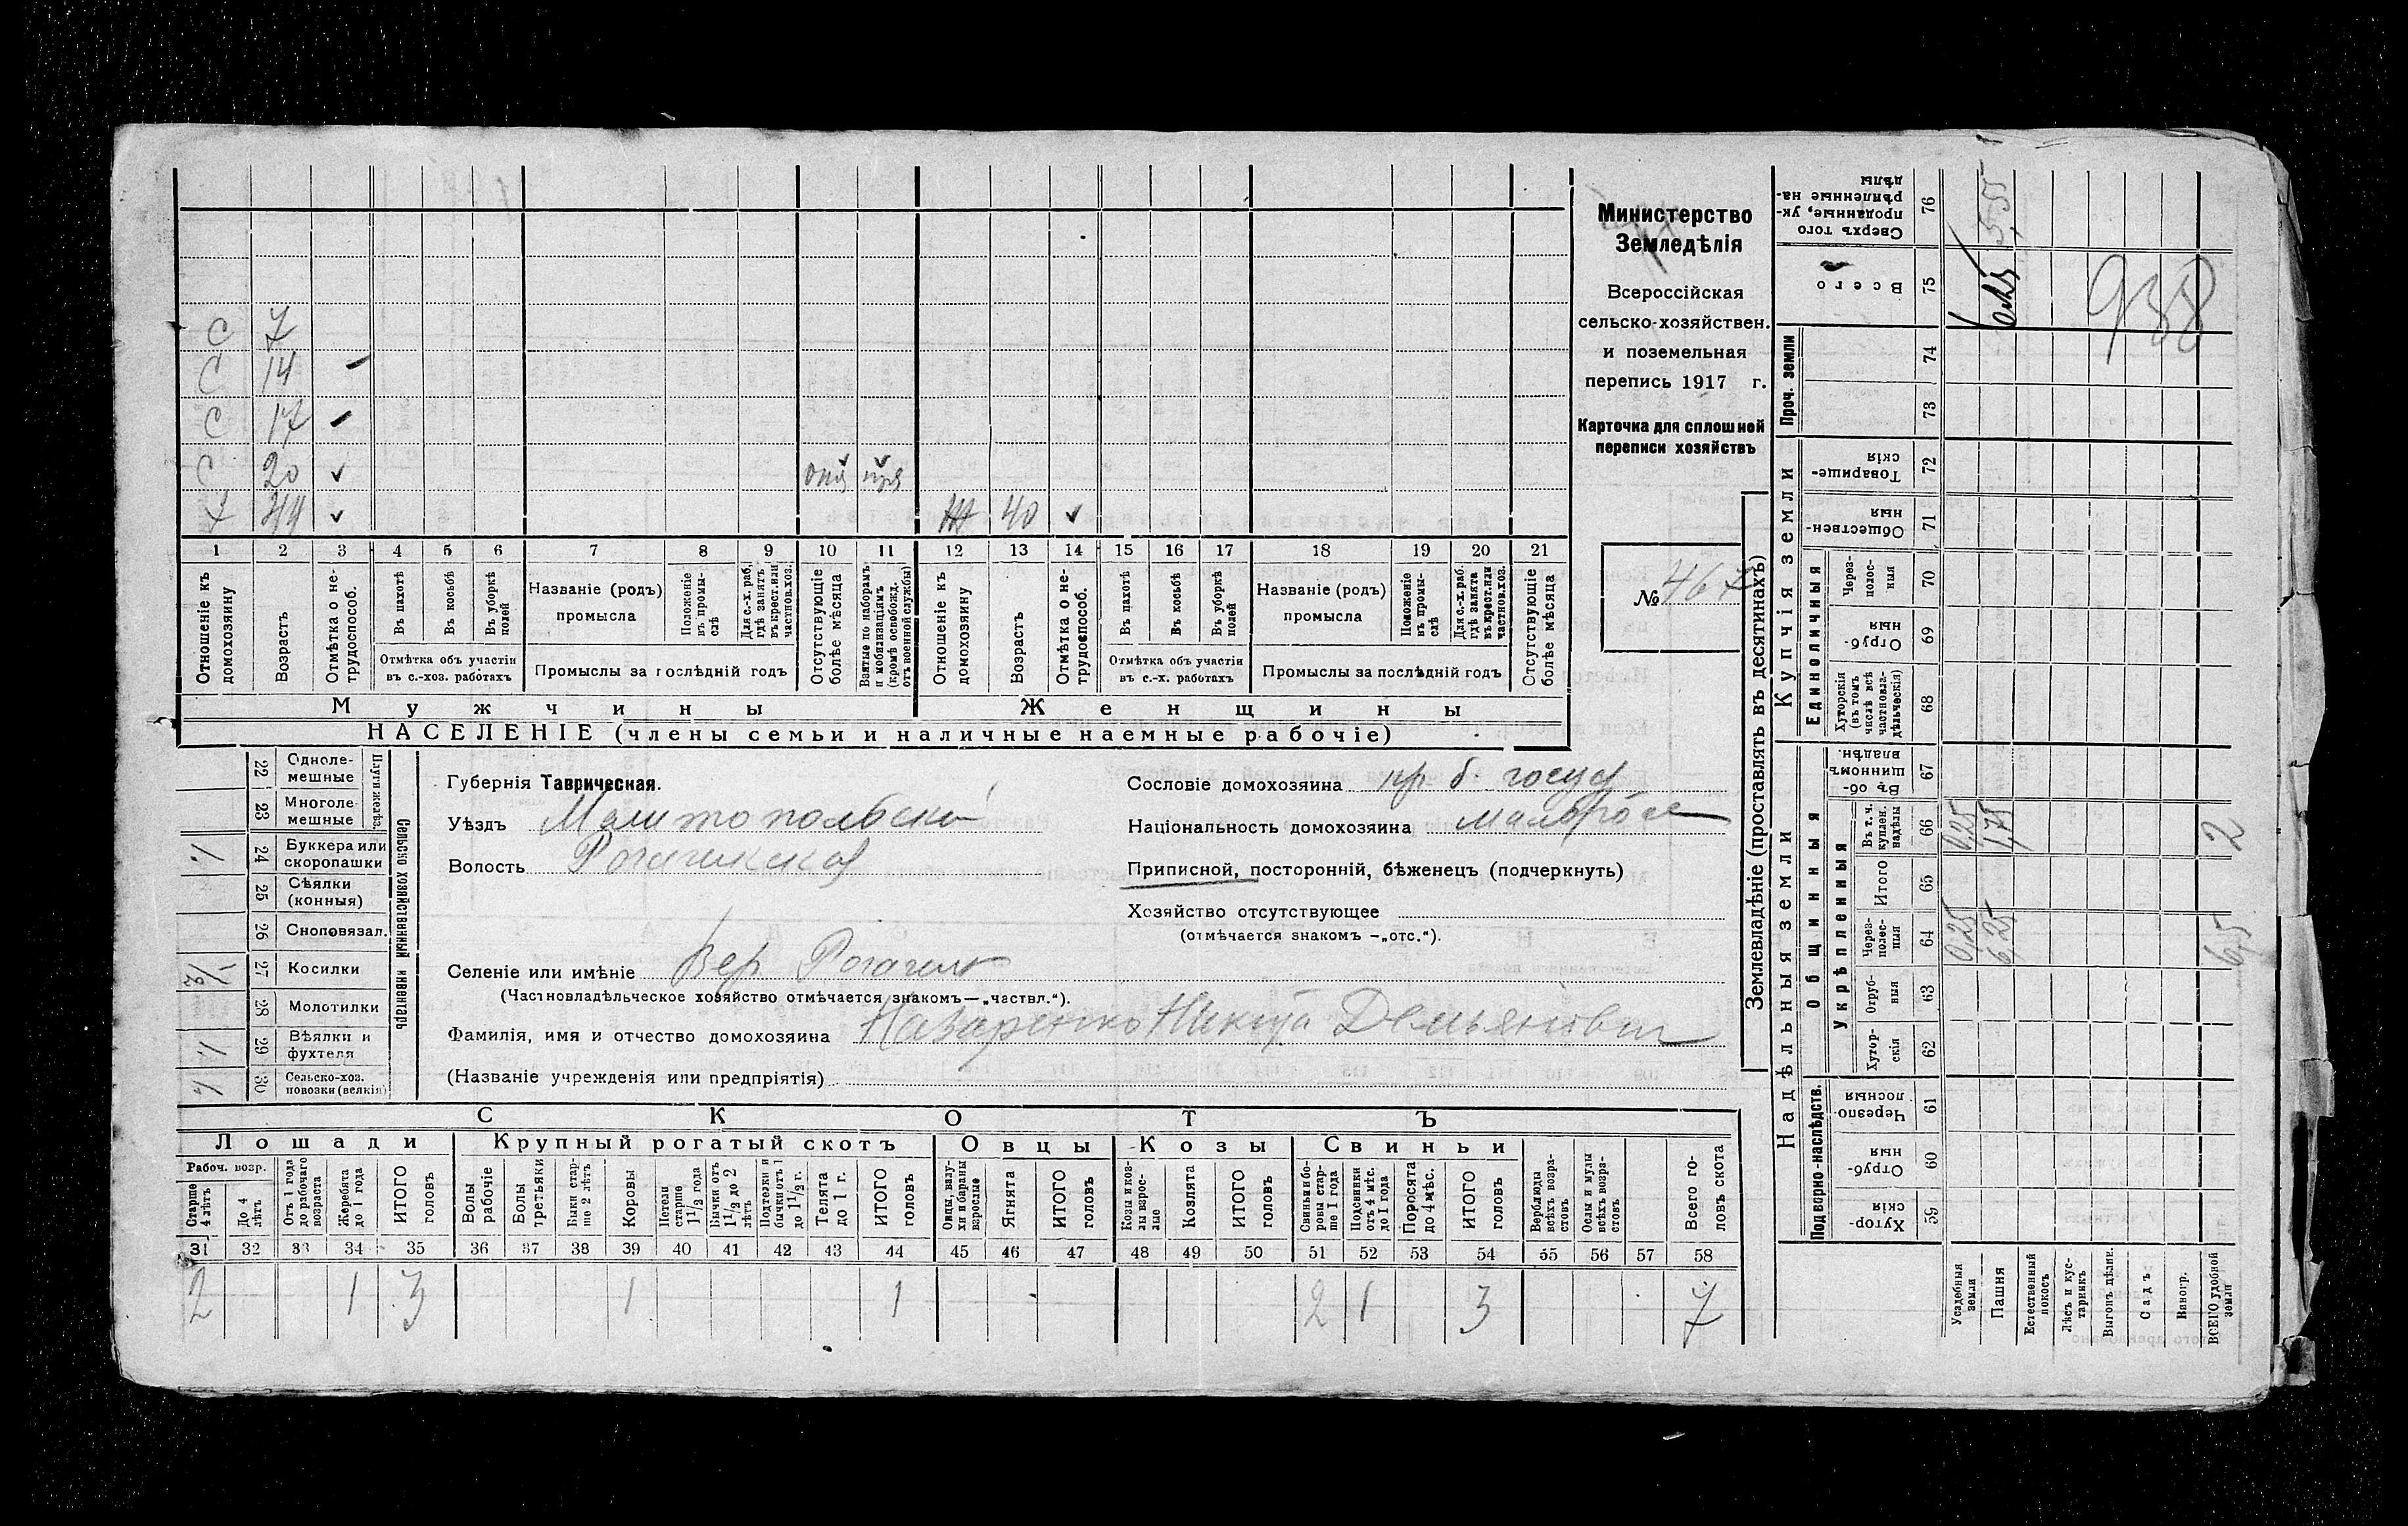 С 7
С 14
С 17
С 20 ✓
44 ✓ Ж 40 ✓
1 2 3 4 5 6 7 8 9 10 11 12 13 14 15 16 17 18 19 20 21
Отношеніе къ домохозяину
Возрастъ
Отмѣтка о не-трудоспособ.
Въ пахотѣ
Въ косьбѣ
Въ уборкѣ полей
Отмѣтка объ участіи въ с.-хоз. работахъ
Названіе (родъ) промысла
Положеніе въ промы-слѣ
Для с.-х. раб. гдѣ занятъ въ крест. или частнов. хоз.
Промыслы за послѣдній годъ
Отсутствующіе болѣе мѣсяца
Взятые по наборамъ и мобилизаціямъ (кромѣ освобожд. отъ военной службы)
Отношеніе къ домохозяину
Возрастъ
Отмѣтка о не-трудоспособ.
Въ пахотѣ
Въ косьбѣ
Въ уборкѣ полей
Отмѣтка объ участіи въ с.-х. работахъ
Названіе (родъ) промысла
Положеніе въ промы-слѣ
Для с.-х. раб. гдѣ занята въ крест. или частнов. хоз.
Промыслы за послѣдній годъ
Отсутствующіе болѣе мѣсяца
Мужчины Женщины
НАСЕЛЕНІЕ (члены семьи и наличные наемные рабочіе)
Министерство
Земледѣлія
Всероссійская
сельско-хозяйствен.
и поземельная
перепись 1917 г.
Карточка для сплошной
переписи хозяйствъ
№ 467
22 Одноле-мешные
23 Многоле-мешные
Плуги желѣз.
24 Буккера или скоропашки 1
25 Сѣялки (конныя)
26 Сноповязал.
27 Косилки 1/2
28 Молотилки
29 Вѣялки и фухтеля 1
30 Сельско-хоз. повозки (всякія)
Сельско хозяйственный инвентарь
Губернія Таврическая.
Уѣздъ Мелитопольскій
Волость Рогачикская
Селеніе или имѣніе Вер Рогачик
(Частновладѣльческое хозяйство отмѣчается знакомъ—„частвл.“).
Фамилія, имя и отчество домохозяина Назаренко Никита Демьянович
(Названіе учрежденія или предпріятія)
Сословіе домохозяина кр. б. госуд
Національность домохозяина малорос
Приписной, посторонній, бѣженецъ (подчеркнуть)
Хозяйство отсутствующее
(отмѣчается знакомъ —„отс.“).
СКОТЪ
Лошади Крупный рогатый скотъ Овцы Козы Свиньи
Рабоч. возр.
Старше 4 лѣтъ
До 4 лѣтъ
Отъ 1 года до рабочаго возраста
Жеребята до 1 года
ИТОГО головъ
Волы рабочіе
Волы третьяки
Быки стар-ше 2 лѣтъ
Коровы
Нетели старше 1 1/2 года
Бычки отъ 1 1/2 до 2 лѣтъ
Подтелки и бычки отъ 1 до 1 1/2 г.
Телята до 1 г.
ИТОГО головъ
Овцы, валу-хи и бараны взрослые
Ягнята
ИТОГО головъ
Козы и коз-лы взрос-лые
Козлята
ИТОГО головъ
Свиньи и бо-ровы стар-ше 1 года
Подсвинки отъ 4 мѣс. до 1 года
Поросята до 4 мѣс.
ИТОГО головъ
Верблюды всѣхъ возра-стовъ
Ослы и мулы всѣхъ возра-стовъ
Всего го-ловъ скота
31 32 33 34 35 36 37 38 39 40 41 42 43 44 45 46 47 48 49 50 51 52 53 54 55 56 57 58
2 1 3 1 1 2 1 3 7
Землевладѣніе (проставлять въ десятинахъ)
Надѣльныя земли Купчія земли Проч. земли
Подворно-наслѣдств. Общинныя
Укрѣпленныя Единоличныя
Хутор-скія 59
Отруб-ныя 60
Черезпо-лосныя 61
Хутор-скія 62
Отруб-ныя 63
Через-полос-ныя 64 0,25 6,25 6,5
Итого 65
Въ т. ч. куплен. надѣлы 66 0,25 1,75 2
Въ об-щинномъ владѣн. 67
Хуторскія (въ томъ числѣ всѣ частновла-дѣльческія) 68
Отруб-ныя 69
Через-полос-ныя 70
Обществен-ныя 71
Товарище-скія 72
73
74
Всего 75 938
Сверхъ того проданные, ук-рѣпленные на-дѣлы 76 5,55
Усадебныя земли
Пашня
Естественный покосъ
Лѣсъ и кус-тарникъ
Выгонъ цѣлин.
Садъ
Виногр.
ВСЕГО удобной земли